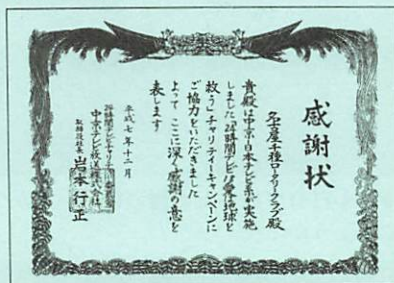 感謝状
名古屋千種ロータリークラブ殿
貴殿は中京・日本テレビ系が実施
しました「24時間テレビ「愛は地球を
救う」チャリティーキャンペーンに
ご協力をいただきました
よって ここに深く感謝の意を
表します
平成七年十二月
24時間テレビチャリティー
中京テレビ放送株式会社
取締役社長 岩本行正